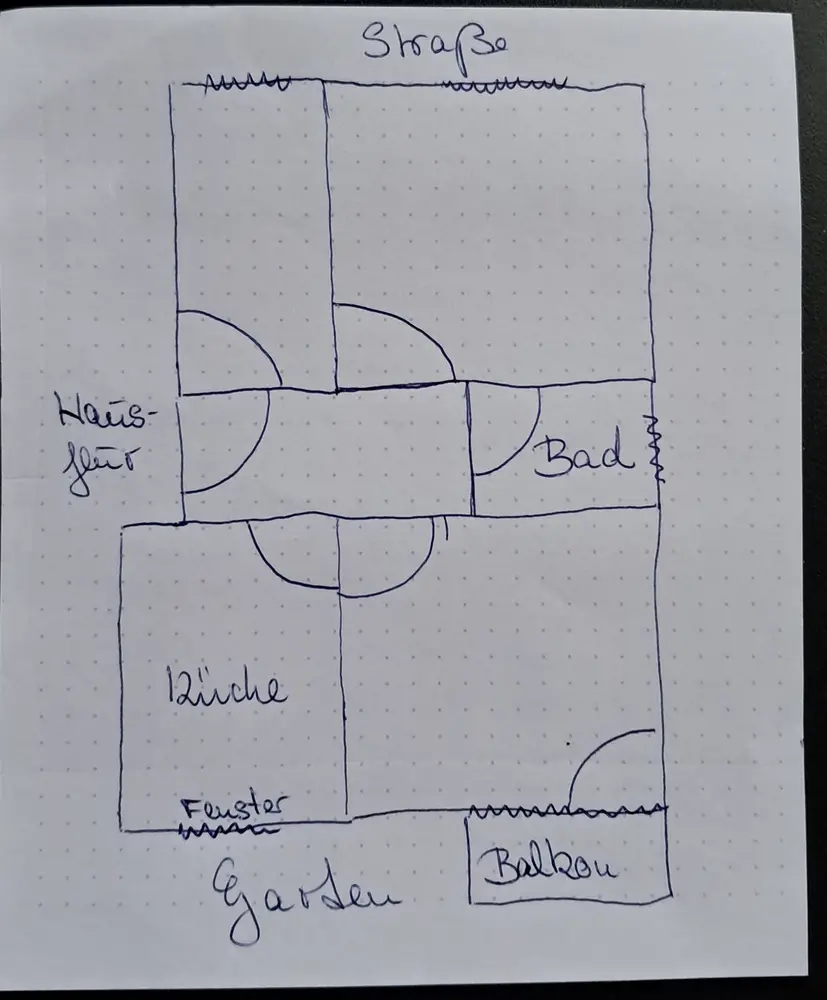 Straße
Haus-
flur
Bad
Küche
Fenster
Balkon
Garten